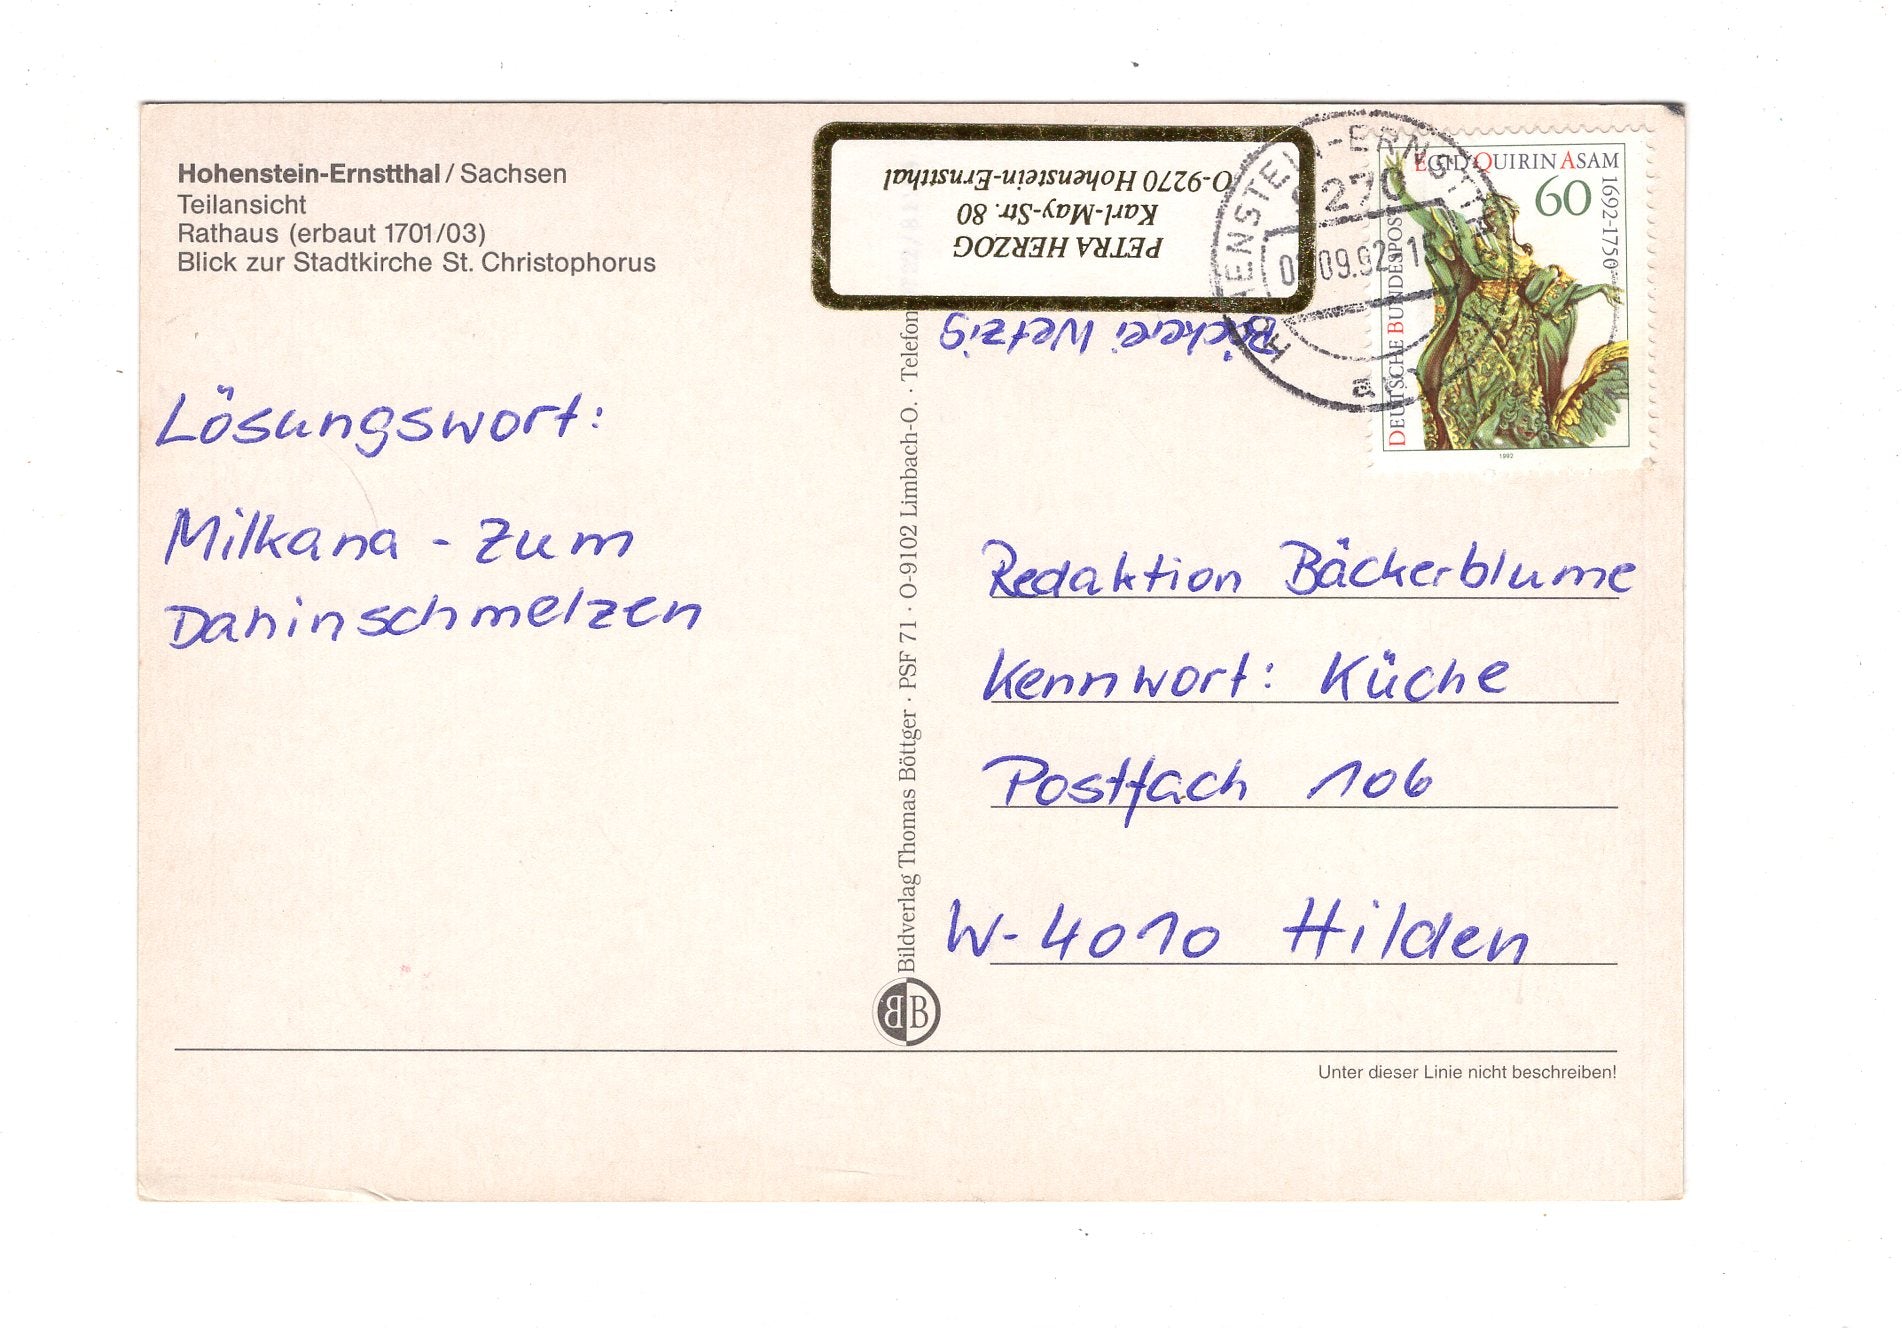 Hohenstein-Ernstthal / Sachsen
Teilansicht
Rathaus (erbaut 1701/03)
Blick zur Stadtkirche St. Christophorus
Lösungswort:
Milkana - zum
Dahinschmelzen
PETRA HERZOG
Karl-May-Str. 80
O-9270 Hohenstein-Ernstthal
Bäckerei Wetzig
HOHENSTEIN-ERNSTTHAL
9270
.09.92-15
a
EGID QUIRIN ASAM
1692-1750
60
DEUTSCHE BUNDESPOST
1992
Bildverlag Thomas Böttger · PSF 71 · O-9102 Limbach-O. · Telefon
BB
Redaktion Bäckerblume
Kennwort: Küche
Postfach 106
W-4010 Hilden
Unter dieser Linie nicht beschreiben!